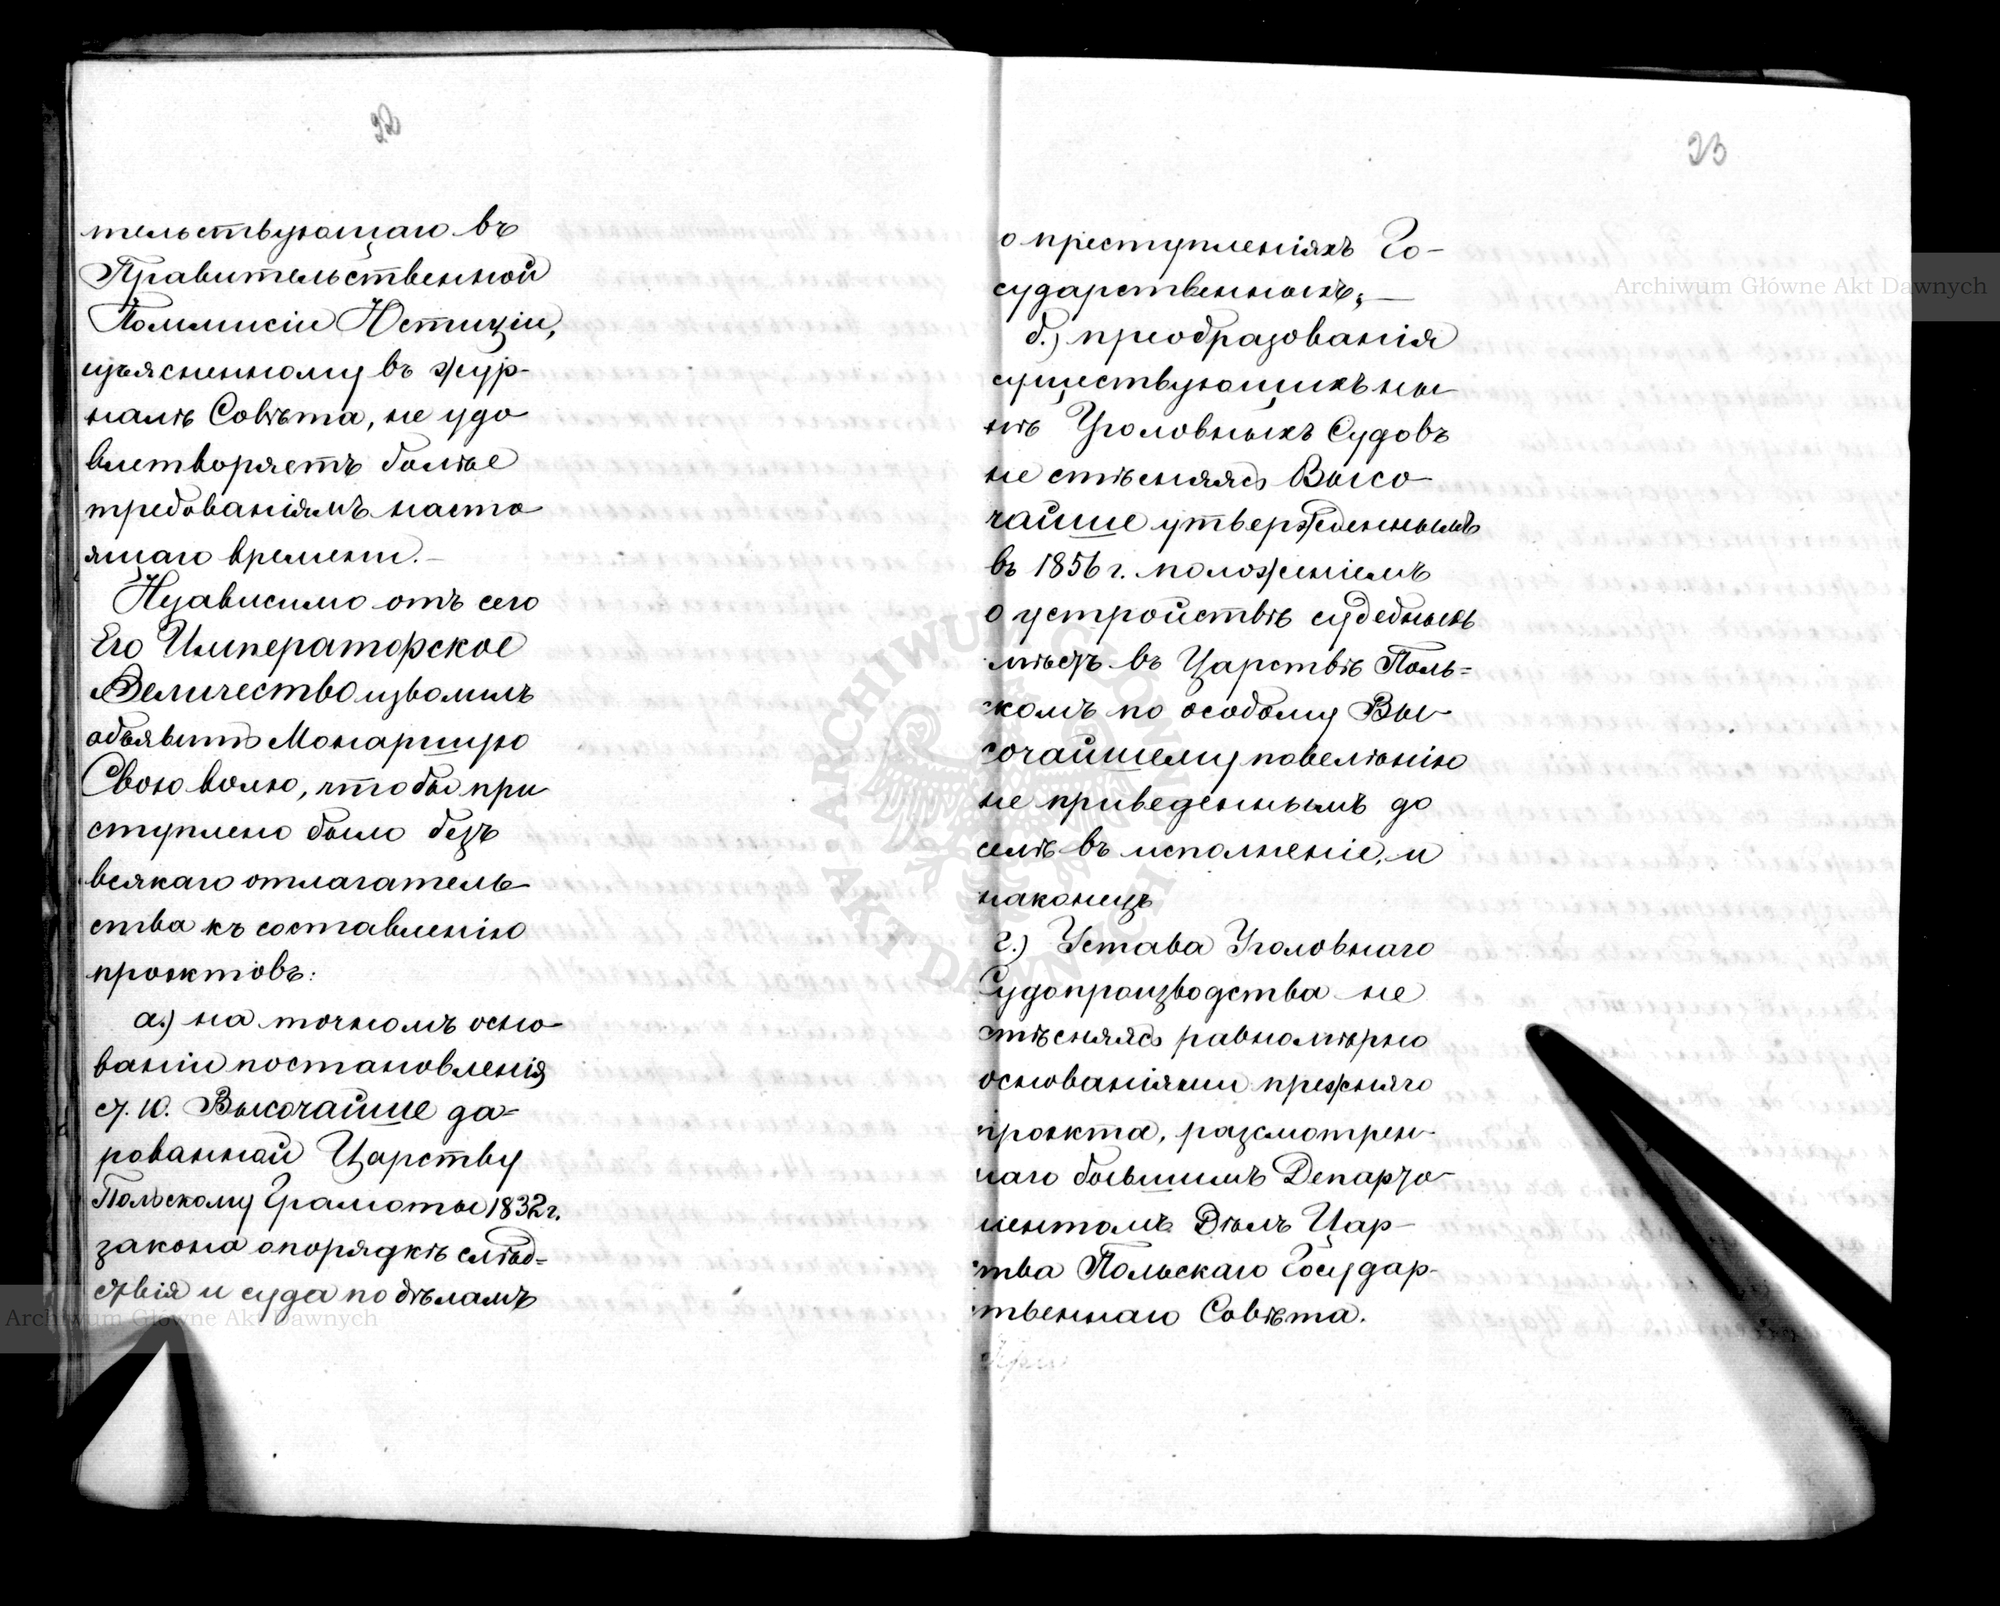 22
тельствующаго въ
Правительственной
Коммисіи Юстиціи,
изъясненному въ жур-
налѣ Совѣта, не удо
влетворяетъ болѣе
требованіямъ насто
ящаго времени.—
Независимо отъ сего
Его Императорское
Величество изволилъ
объявить Монаршую
Свою волю, чтобы при
ступлено было безъ
всякаго отлагатель-
ства къ составленію
проэктовъ:
а.) на точномъ осно-
ваніи постановленія
ст. 10. Высочайше да-
рованной Царству
Польскому Грамоты 1832 г.
закона о порядкѣ слѣд-
ствія и суда по дѣламъ
23
о преступленіяхъ Го-
сударственныхъ;—
б.) преобразованія
существующихъ ны-
нѣ Уголовныхъ Судовъ
не стѣсняясь Высо-
чайше утвержденнымъ
въ 1856 г. положеніемъ
о устройствѣ судебныхъ
мѣстъ въ Царствѣ Поль=
скомъ по особому Вы-
сочайшему повелѣнію
не приведеннымъ до
селѣ въ исполненіе, и
наконецъ
г.) Устава Уголовнаго
Судопроизводства не
стѣсняясь равномѣрно
основаніями прежняго
проэкта, разсмотрен-
наго бывшимъ Департа-
ментомъ Дѣлъ Цар-
ства Польскаго Государ-
ственнаго Совѣта.
При
Archiwum Główne Akt Dawnych
Archiwum Główne Akt Dawnych
ARCHIWUM GŁÓWNE
AKT DAWNYCH